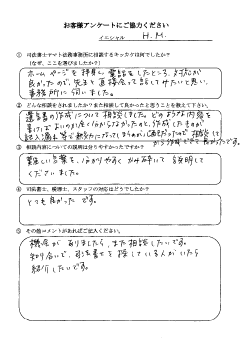 お客様アンケートにご協力ください
イニシャル H.M.
① 司法書士ヤマト法務事務所に相談するキッカケは何でしたか?
(なぜ、ここを選びましたか?)
ホームページを拝見し電話をしたところ、対応が
良かったので、先生と直接会って話してみたいと思い、
事務所に伺いました。
② どんな相談をされましたか?また相談して良かったと思うことを教えて下さい。
遺言書の作成について相談しました。どのような内容を
書けばよいのか全く分からなかったので、作成したものが
③ 相談内容についての説明は分りやすかったですか?
難しい言葉を、分かりやすくかみ砕いて説明して
くださいました。
④ 司法書士、税理士、スタッフの対応はどうでしたか?
とても良かったです。
⑤ その他コメントがあればご記入ください。
機会がありましたら、また相談したいです。
知り合いで、司法書士を探している人がいたら
紹介したいです。